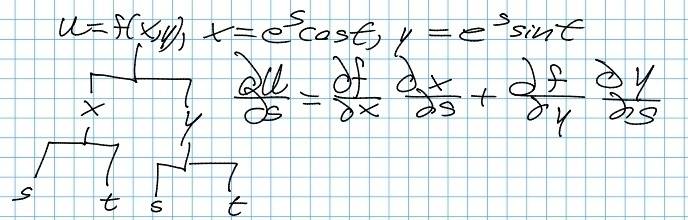 u=f(x,y), x=e^s cost, y=e^s sint
∂u/∂s = ∂f/∂x ∂x/∂s + ∂f/∂y ∂y/∂s
x y
s t s t